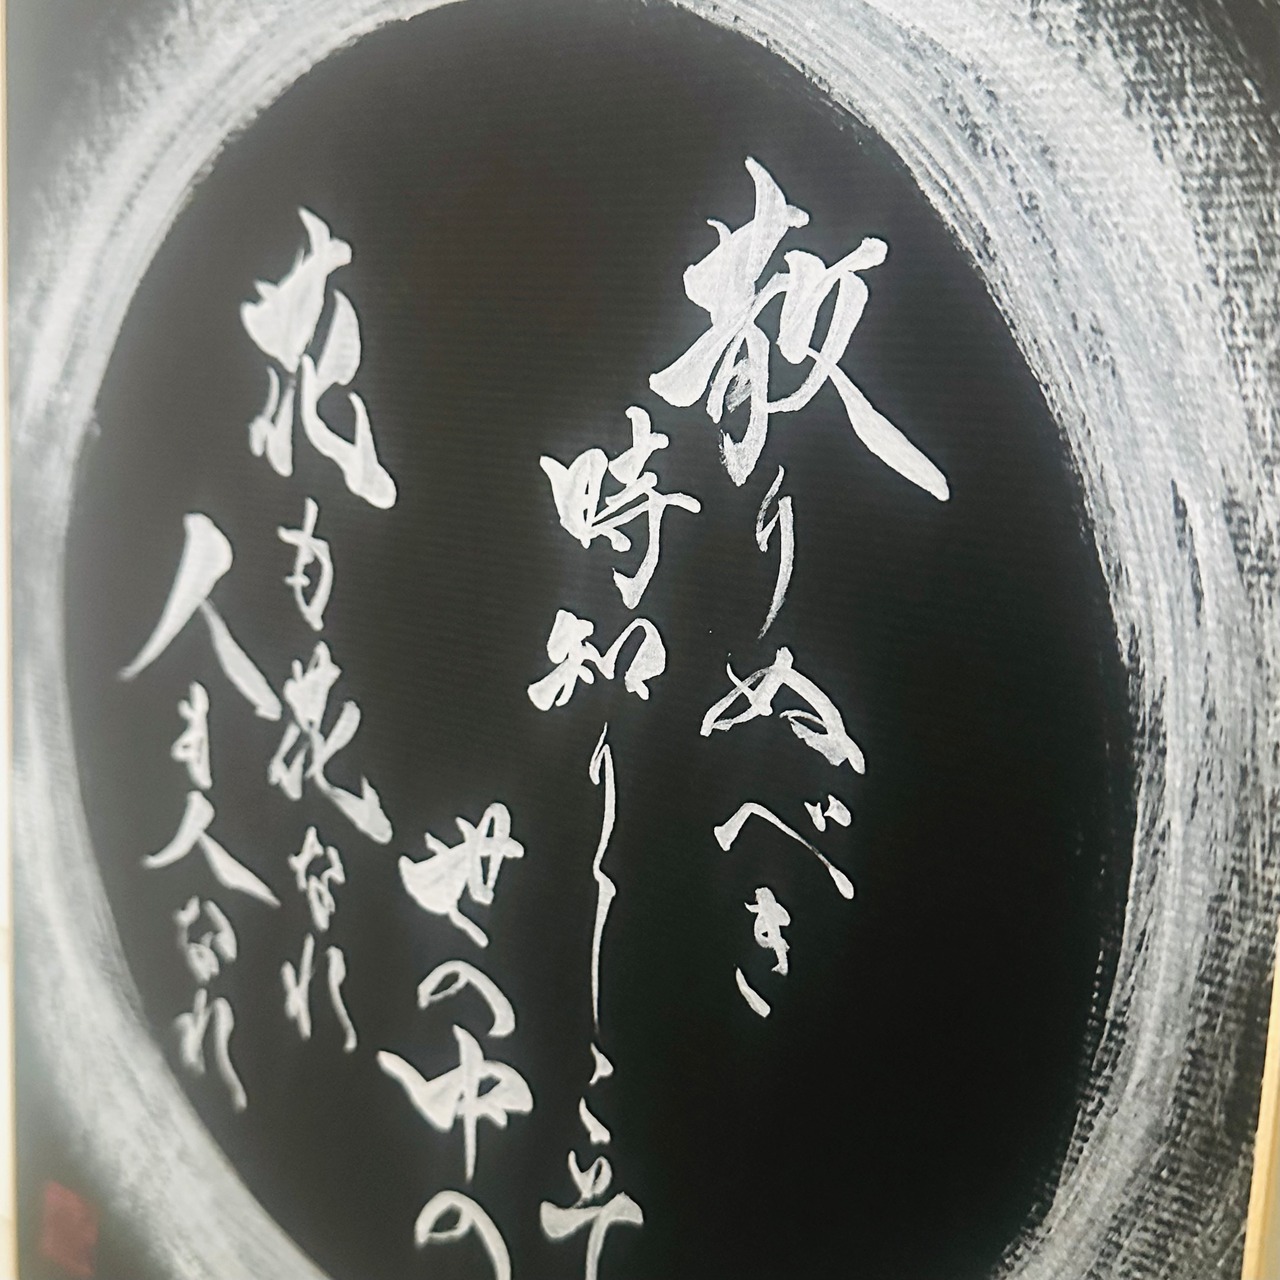 散りぬべき
時知りしこそ
世の中の
花も花なれ
人も人なれ